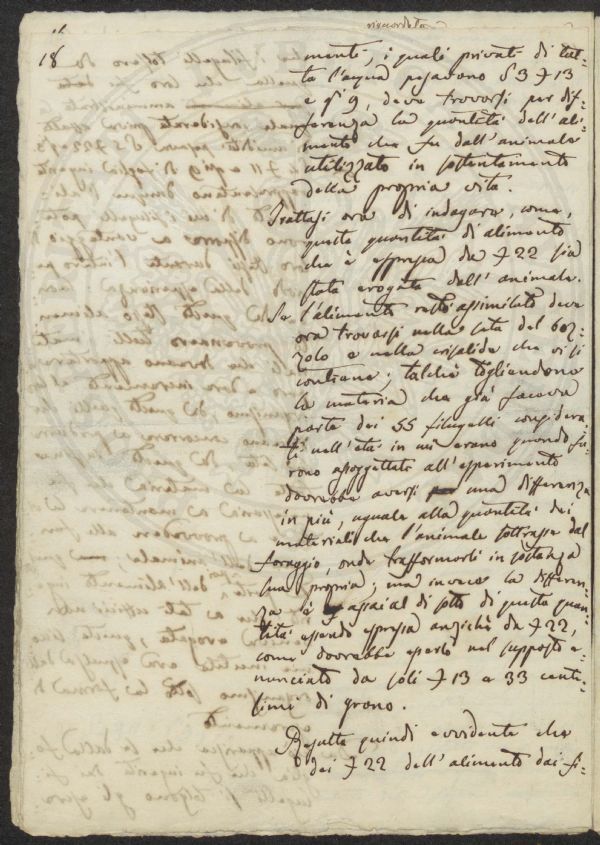 riscordata
18
menti, i quali privati di tut-
ta l'acqua pesavano § 3 Ʒ 13
e gi 9, deve trovarsi per dif-
ferenza la quantità dell'ali-
mento che fu dall'animale
utilizzato in sostentamento
della propria vita.
Trattasi ora di indagare, come,
questa quantità d'alimento
che è espressa da Ʒ 22 sia
stata erogata dall'animale.
Se l'alimento restò assimilato deve
ora trovarsi nella seta del boz-
zolo e nella crisalide che vi si
contiene; talchè togliendone
la materia che già faceva
parte dei 55 filugelli considera-
ti nell'età in cui erano quando fu-
rono assoggettati all'esperimento
dovrebbe aversi una differenza
in più, uguale alla quantità dei
materiali che l'animale sottrasse dal
foraggio, onde trasformarli in sostanza
sua propria; ma invece la differen-
za è assai al di sotto di questa quan-
tità essendo espressa anzichè da Ʒ 22,
come dovrebbe esserlo nel supposto e-
nunciato da soli Ʒ 13 a 33 cente-
simi di grano.
Risulta quindi evidente che
dei Ʒ 22 dell'alimento dai fi-